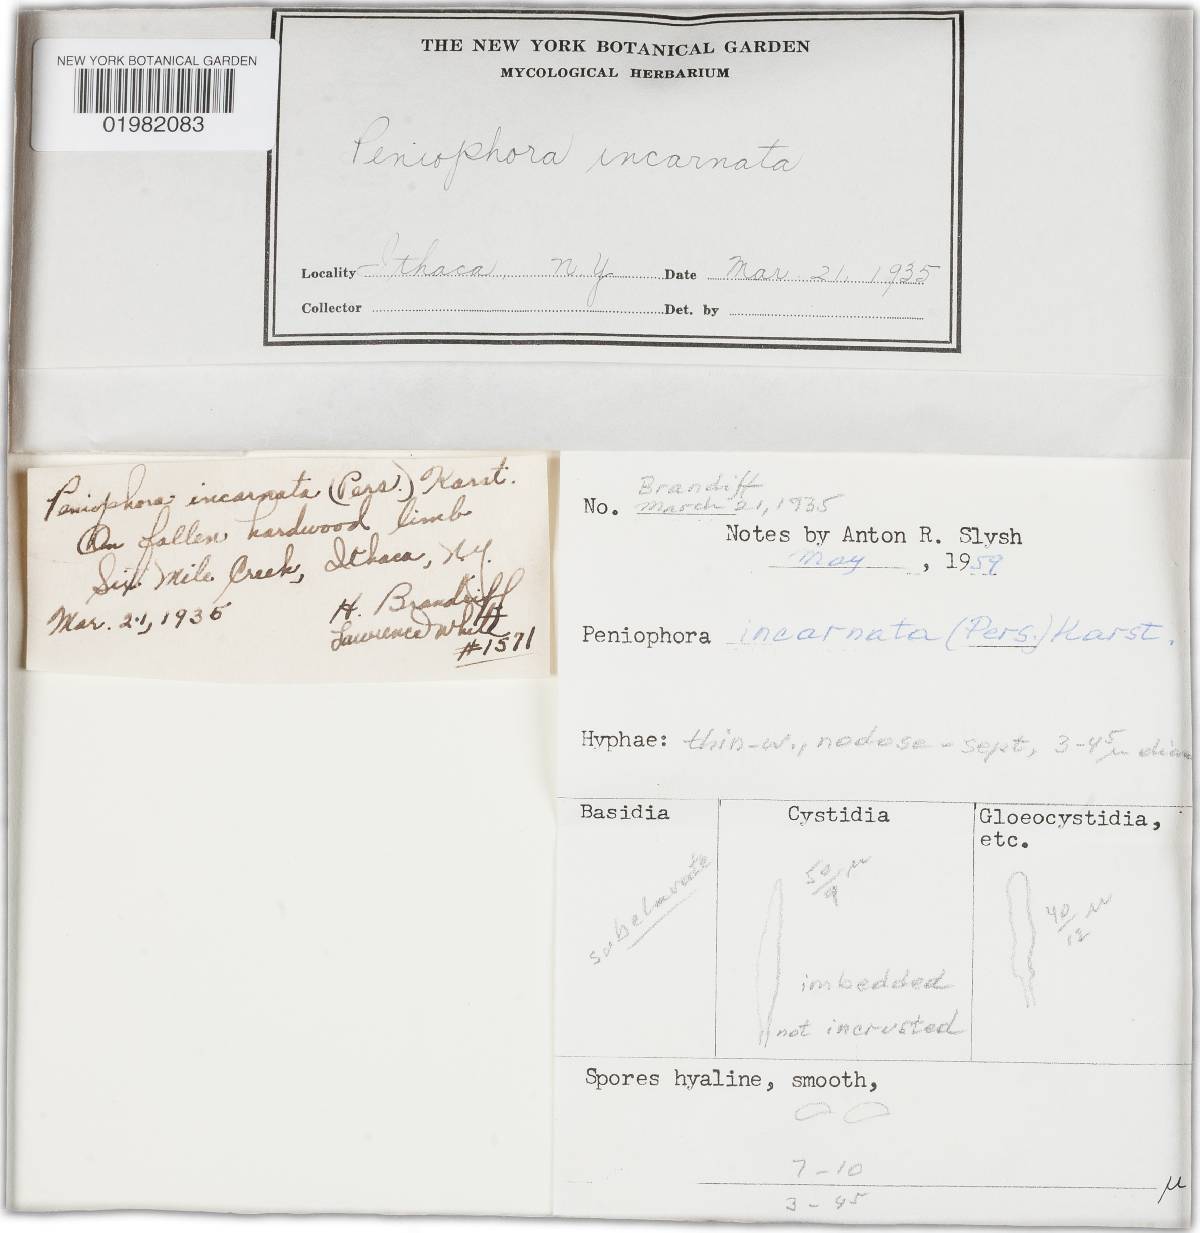 THE NEW YORK BOTANICAL GARDEN
MYCOLOGICAL HERBARIUM
NEW YORK BOTANICAL GARDEN
01982083
Peniophora incarnata
Locality Ithaca, N.Y. Date Mar 21, 1935
Collector Det. by
Peniophora incarnata (Pers.) Karst.
On fallen hardwood limb
Six Mile Creek, Ithaca, N.Y.
Mar. 21, 1935 H. Brandriff
Lawrence White
#1571
Brandiff
No. March 21, 1935
Notes by Anton R. Slysh
May, 1959
Peniophora incarnata (Pers.) Karst.
Hyphae: thin-w., nodose-sept, 3-4.5 µ diam
Basidia Cystidia Gloeocystidia,
etc.
subclavate
50/9 µ
40/12 µ
imbedded
not incrusted
Spores hyaline, smooth,
7-10
3-4.5 µ